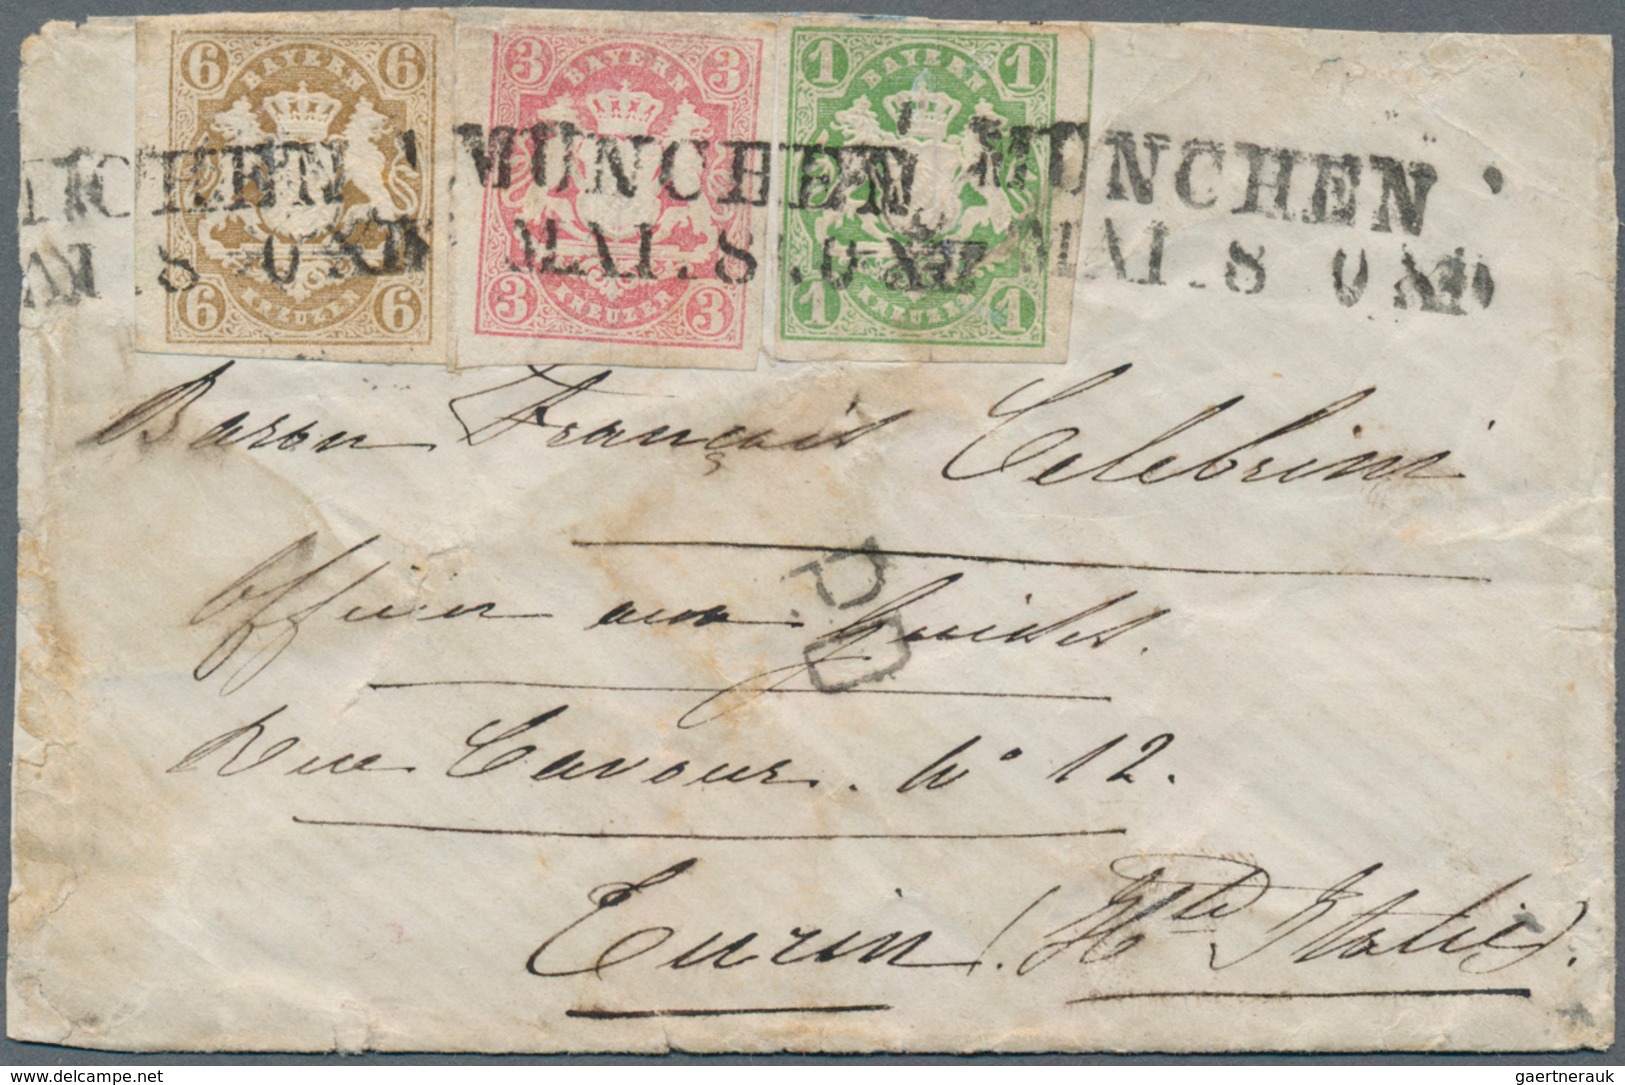 6 BAYERN 6
6 KREUZER 6
3 BAYERN 3
3 KREUZER 3
1 BAYERN 1
1 KREUZER 1
NCHEN MÜNCHEN MÜNCHEN
MAI. 8 MAI. 8
Baron François Celebrini
P.D.
Officier aux Guides.
Rue Cavour. No 12.
Turin (Hte Italie).
www.delcampe.net
gaertnerauk